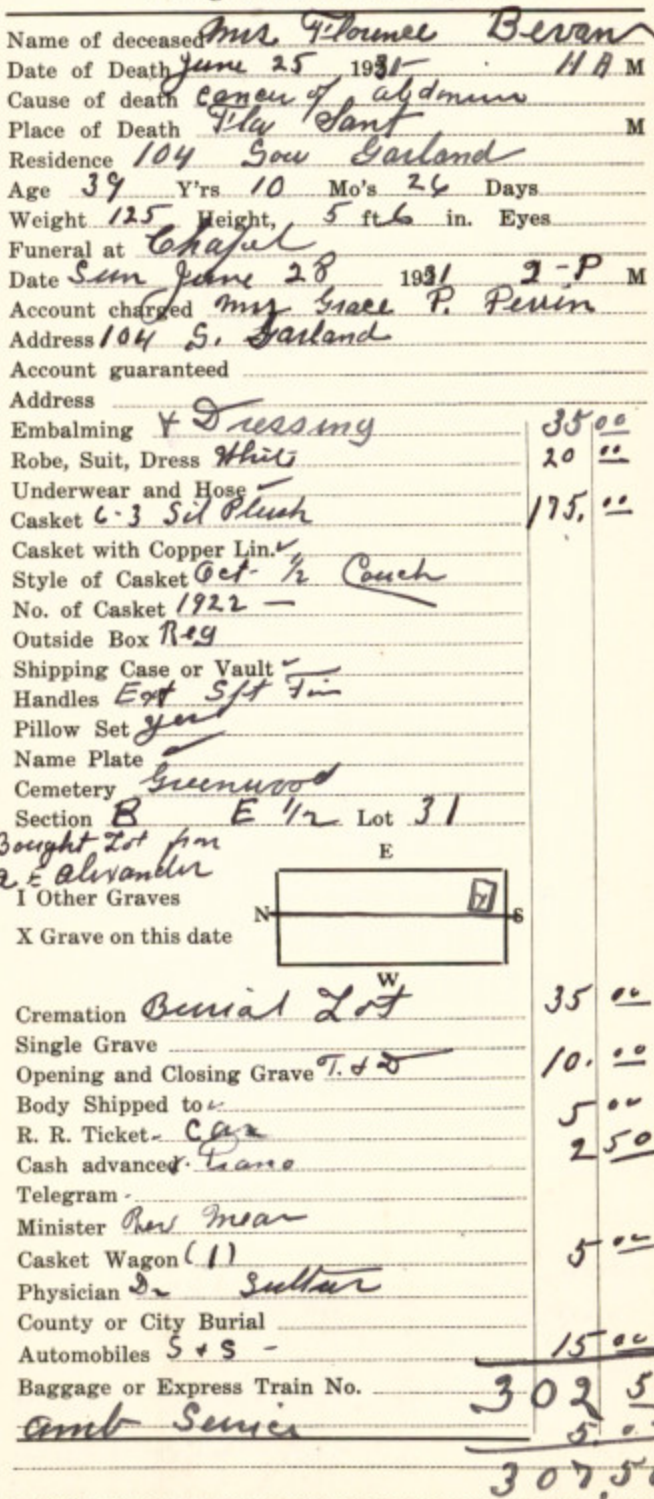 Name of deceased Mrs Florence Bevan
Date of Death June 25 1931 4 A M
Cause of death cancer of abdomen
Place of Death Fla Sant M
Residence 104 Sou Garland
Age 39 Y'rs 10 Mo's 26 Days
Weight 125 Height, 5 ft 6 in. Eyes
Funeral at Chapel
Date Sun June 28 1931 2-P M
Account charged Mrs Grace P. Perrin
Address 104 S. Garland
Account guaranteed
Address
Embalming & Dressing 35 00
Robe, Suit, Dress White 20 00
Underwear and Hose ✓
Casket 6-3 Sil Plush 175. 00
Casket with Copper Lin. ✓
Style of Casket Oct- 1/2 Couch
No. of Casket 1922 -
Outside Box Reg
Shipping Case or Vault ✓
Handles Ext Sft Fin
Pillow Set yes
Name Plate ✓
Cemetery Greenwood
Section B E 1/2 Lot 31
Bought Lot from
a E Alexander
E
I Other Graves
N S
X Grave on this date
X
W
Cremation Burial Lot 35 00
Single Grave
Opening and Closing Grave T. & D 10. 00
Body Shipped to 5 00
R. R. Ticket - Car 2 50
Cash advanced. Piano
Telegram -
Minister Rev Mear
Casket Wagon (1) 5 00
Physician Dr
County or City Burial
Automobiles S & S - 15 00
Baggage or Express Train No. 302 5
Amb Service 5. 0
307.50